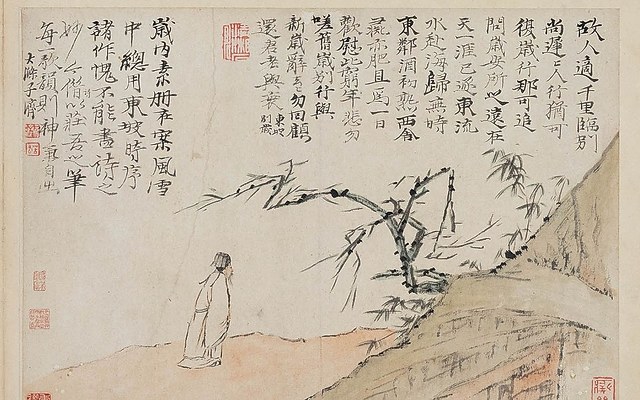 故人適千里臨別
尚遲〻人行猶可
復歲行那可追
問歲安所之遠在
天一涯已逐東流
水赴海歸無時
東鄰酒初熟西舍
彘亦肥且為一日
歡慰此窮年悲勿
嗟舊歲別行與
新歲辭去〻勿回顧
還君老與衰
東坡
別歲
歲內素冊在案風雪
中總用東坡時序
諸作愧不能盡詩之
妙借以莊吾之筆
每一歌則神自出
大滌子濟